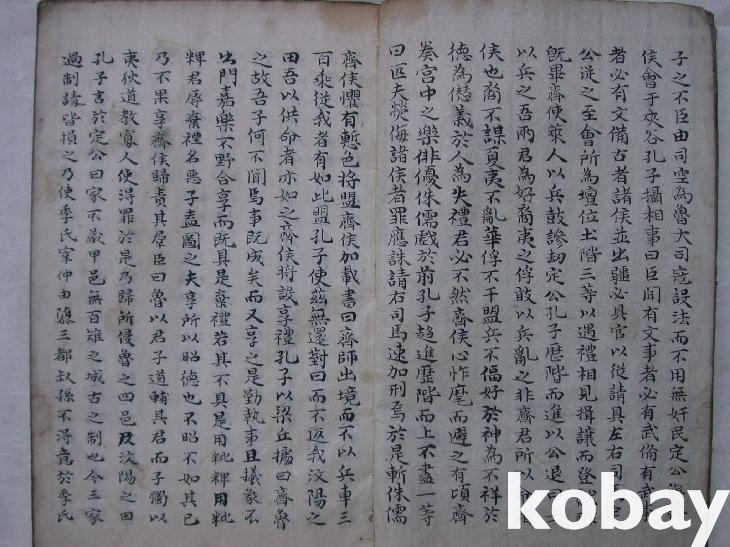 子之不臣由司空為魯大司寇設法而不用無奸民定公與
侯會于夾谷孔子攝相事曰臣聞有文事者必有武俻有武
者必有文備古者諸侯並出疆必具官以從請具左右司
公從之至會所為壇位土階三等以遇禮相見揖讓而登
旣畢齊使萊人以兵鼓謲劫定公孔子歷階而進以公退曰
以兵之吾兩君為好裔夷之俘敢以兵亂之非齊君所以
侯也裔不謀夏夷不亂華俘不干盟兵不偪好於神為不祥於
德為愆義於人為失禮君必不然齊侯心怍麾而避之有頃齊
奏宮中之樂俳優侏儒戲於前孔子趍進歷階而上不盡一等
曰匹夫熒侮諸侯者罪應誅請右司馬速加刑焉於是斬侏儒
齊侯懼有慙色將盟齊侯加載書曰齊師出境而不以兵車三
百乘從我者有如此盟孔子使茲無還對曰而不返我汶陽之
田吾以供命者亦如之齊侯將設享禮孔子以梁丘據曰齊魯
之故吾子何不聞焉事既成矣而又享之是勤執事且犧象不
出門嘉樂不野合享而既具是棄禮若其不具是用粃粺用粃
粺君辱棄禮名惡子盍圖之夫享所以昭德也不昭不如其已
乃不果享齊侯歸責其羣臣曰魯以君子道輔其君而子獨以
夷狄道教寡人使淂罪於是乃歸所侵魯之四邑及汶陽之田
孔子言於定公曰家不藏甲邑無百雉之城古之制也今三家
過制請皆損之乃使季氏宰仲由隳三都叔孫不淂意於季氏
kobay